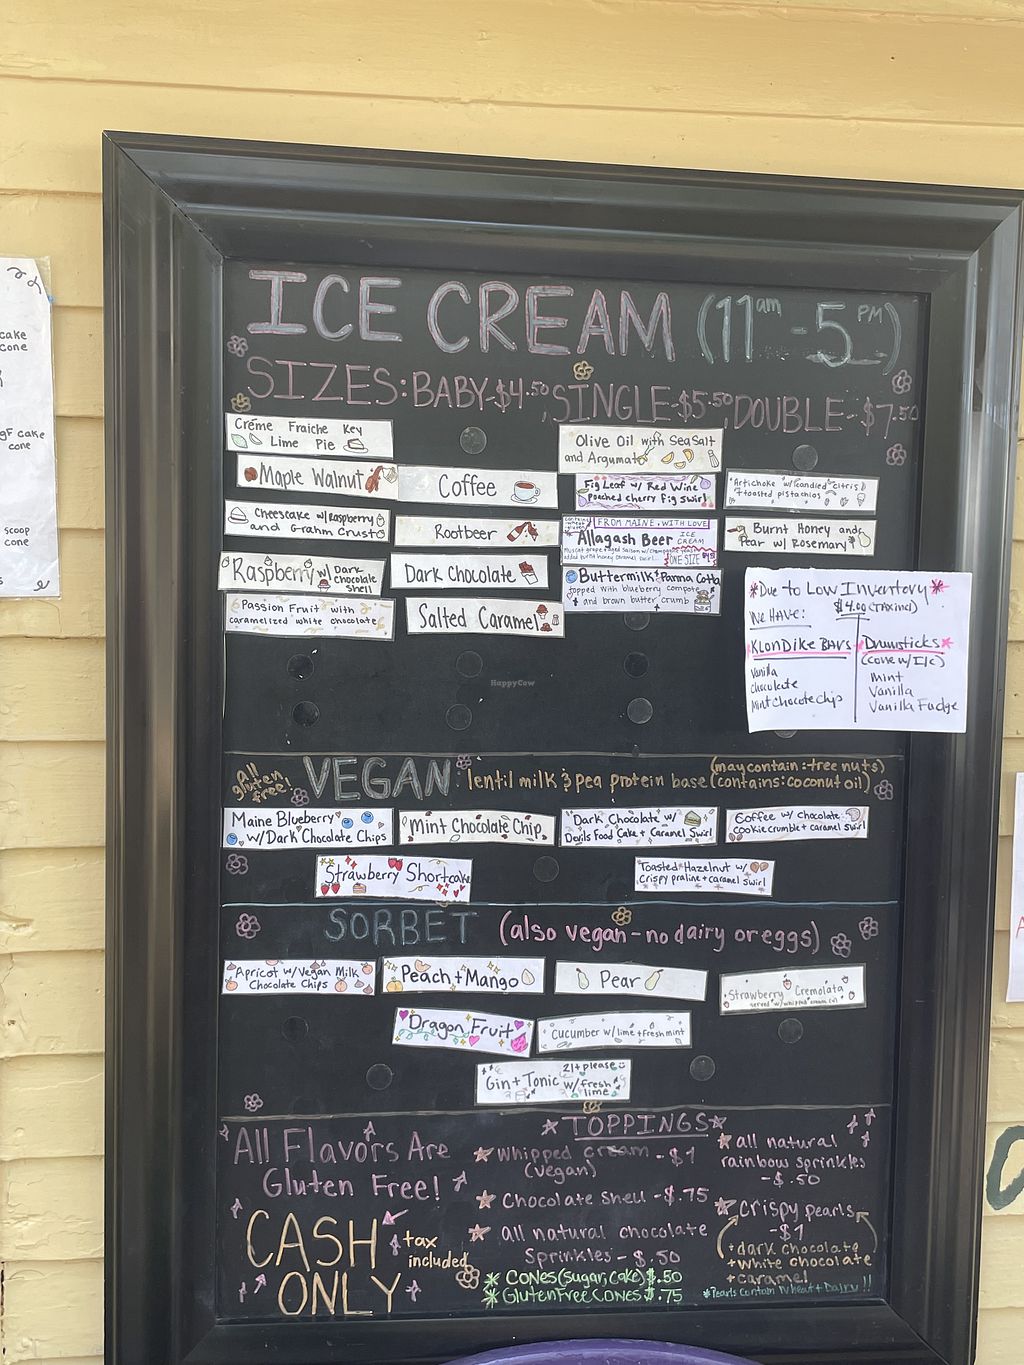 ICE CREAM (11am - 5PM)
SIZES: BABY-$4.50, SINGLE-$5.50, DOUBLE-$7.50
Créme Fraiche Key
Lime Pie
Maple Walnut
Cheesecake w/Raspberry
and Grahm Crust
Raspberry w/ Dark
chocolate
Shell
Passion Fruit with
caramelized white chocolate
Coffee
Rootbeer
Dark Chocolate
Salted Caramel
Olive Oil with Sea Salt
and Argumato
Fig Leaf w/ Red Wine
poached cherry fig swirl
contains
wheat
FROM MAINE, WITH LOVE
Allagash Beer ICE
CREAM
added burnt honey caramel swirl
ONE SIZE
Buttermilk Panna Cotta
topped with blueberry compote
and brown butter crumb
Artichoke w/candied citris
+ toasted pistachios
Burnt Honey and
Pear w/ Rosemary
*Due to Low Inventory*
WE HAVE: $4.00 (TAX incl)
KLONDiKE BARS
Vanilla
chocolate
Mint Chocote Chip
Drumsticks*
(cone w/I/c)
Mint
Vanilla
Vanilla Fudge
HappyCow
All
gluten
free!
VEGAN: lentil milk & pea protein base (may contain: tree nuts)
(contains: coconut oil)
Maine Blueberry
w/Dark Chocolate Chips
Mint Chocolate Chip
Dark Chocolate w/
Devils Food Cake + Caramel Swirl
Coffee w/ chocolate
cookie crumble + caramel swirl
Strawberry Shortcake
Toasted Hazelnut w/
Crispy praline + caramel swirl
SORBET (also vegan - no dairy or eggs)
Apricot w/ Vegan Milk
Chocolate Chips
Peach + Mango
Pear
Strawberry Cremolata
served w/ whipped cream (v)
Dragon Fruit
Cucumber w/ lime + fresh mint
Gin + Tonic 21+ please
w/ fresh
lime
All Flavors Are
Gluten Free!
CASH
ONLY
tax
included
TOPPINGS
whipped cream - $1
(vegan)
Chocolate Shell - $.75
all natural chocolate
Sprinkles - $.50
* CONES (sugar, cake) $.50
* Gluten Free CONES $.75
all natural
rainbow sprinkles
- $.50
crispy pearls
- $1
+ dark chocolate
+ white chocolate
+ caramel
*Pearls contain Wheat + Dairy!!
cake
cone
gF cake
cone
scoop
cone